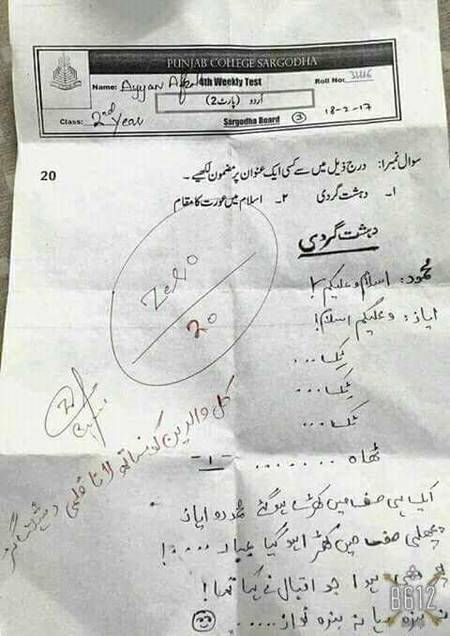 PUNJAB COLLEGE SARGODHA
Name: Ayyan Afzal 4th Weekly Test Roll No:
اُردو (پارٹ 2)
Class: 2nd Year Sargodha Board 3 18-2-17
سوال نمبر 1: درج ذیل میں سے کسی ایک عنوان پر مضمون لکھیے۔ 20
۱۔ دہشت گردی ۲۔ اسلام میں عورت کا مقام
دہشت گردی
محمود: اسلام و علیکم!
ایاز: وعلیکم اسلام!
ٹِک...
ٹِک...
ٹِک...
ٹھاہ ........ 1
Zero
20
کل والدین کو ساتھ لانا
ایک ہی صف میں کھڑے ہو گئے محمود و ایاز
پچھلی صف میں کھڑا ہو گیا ....!
ہوا جو اقبال نے کہا تھا!
نہ بندہ رہا نہ بندہ نواز ....
B612